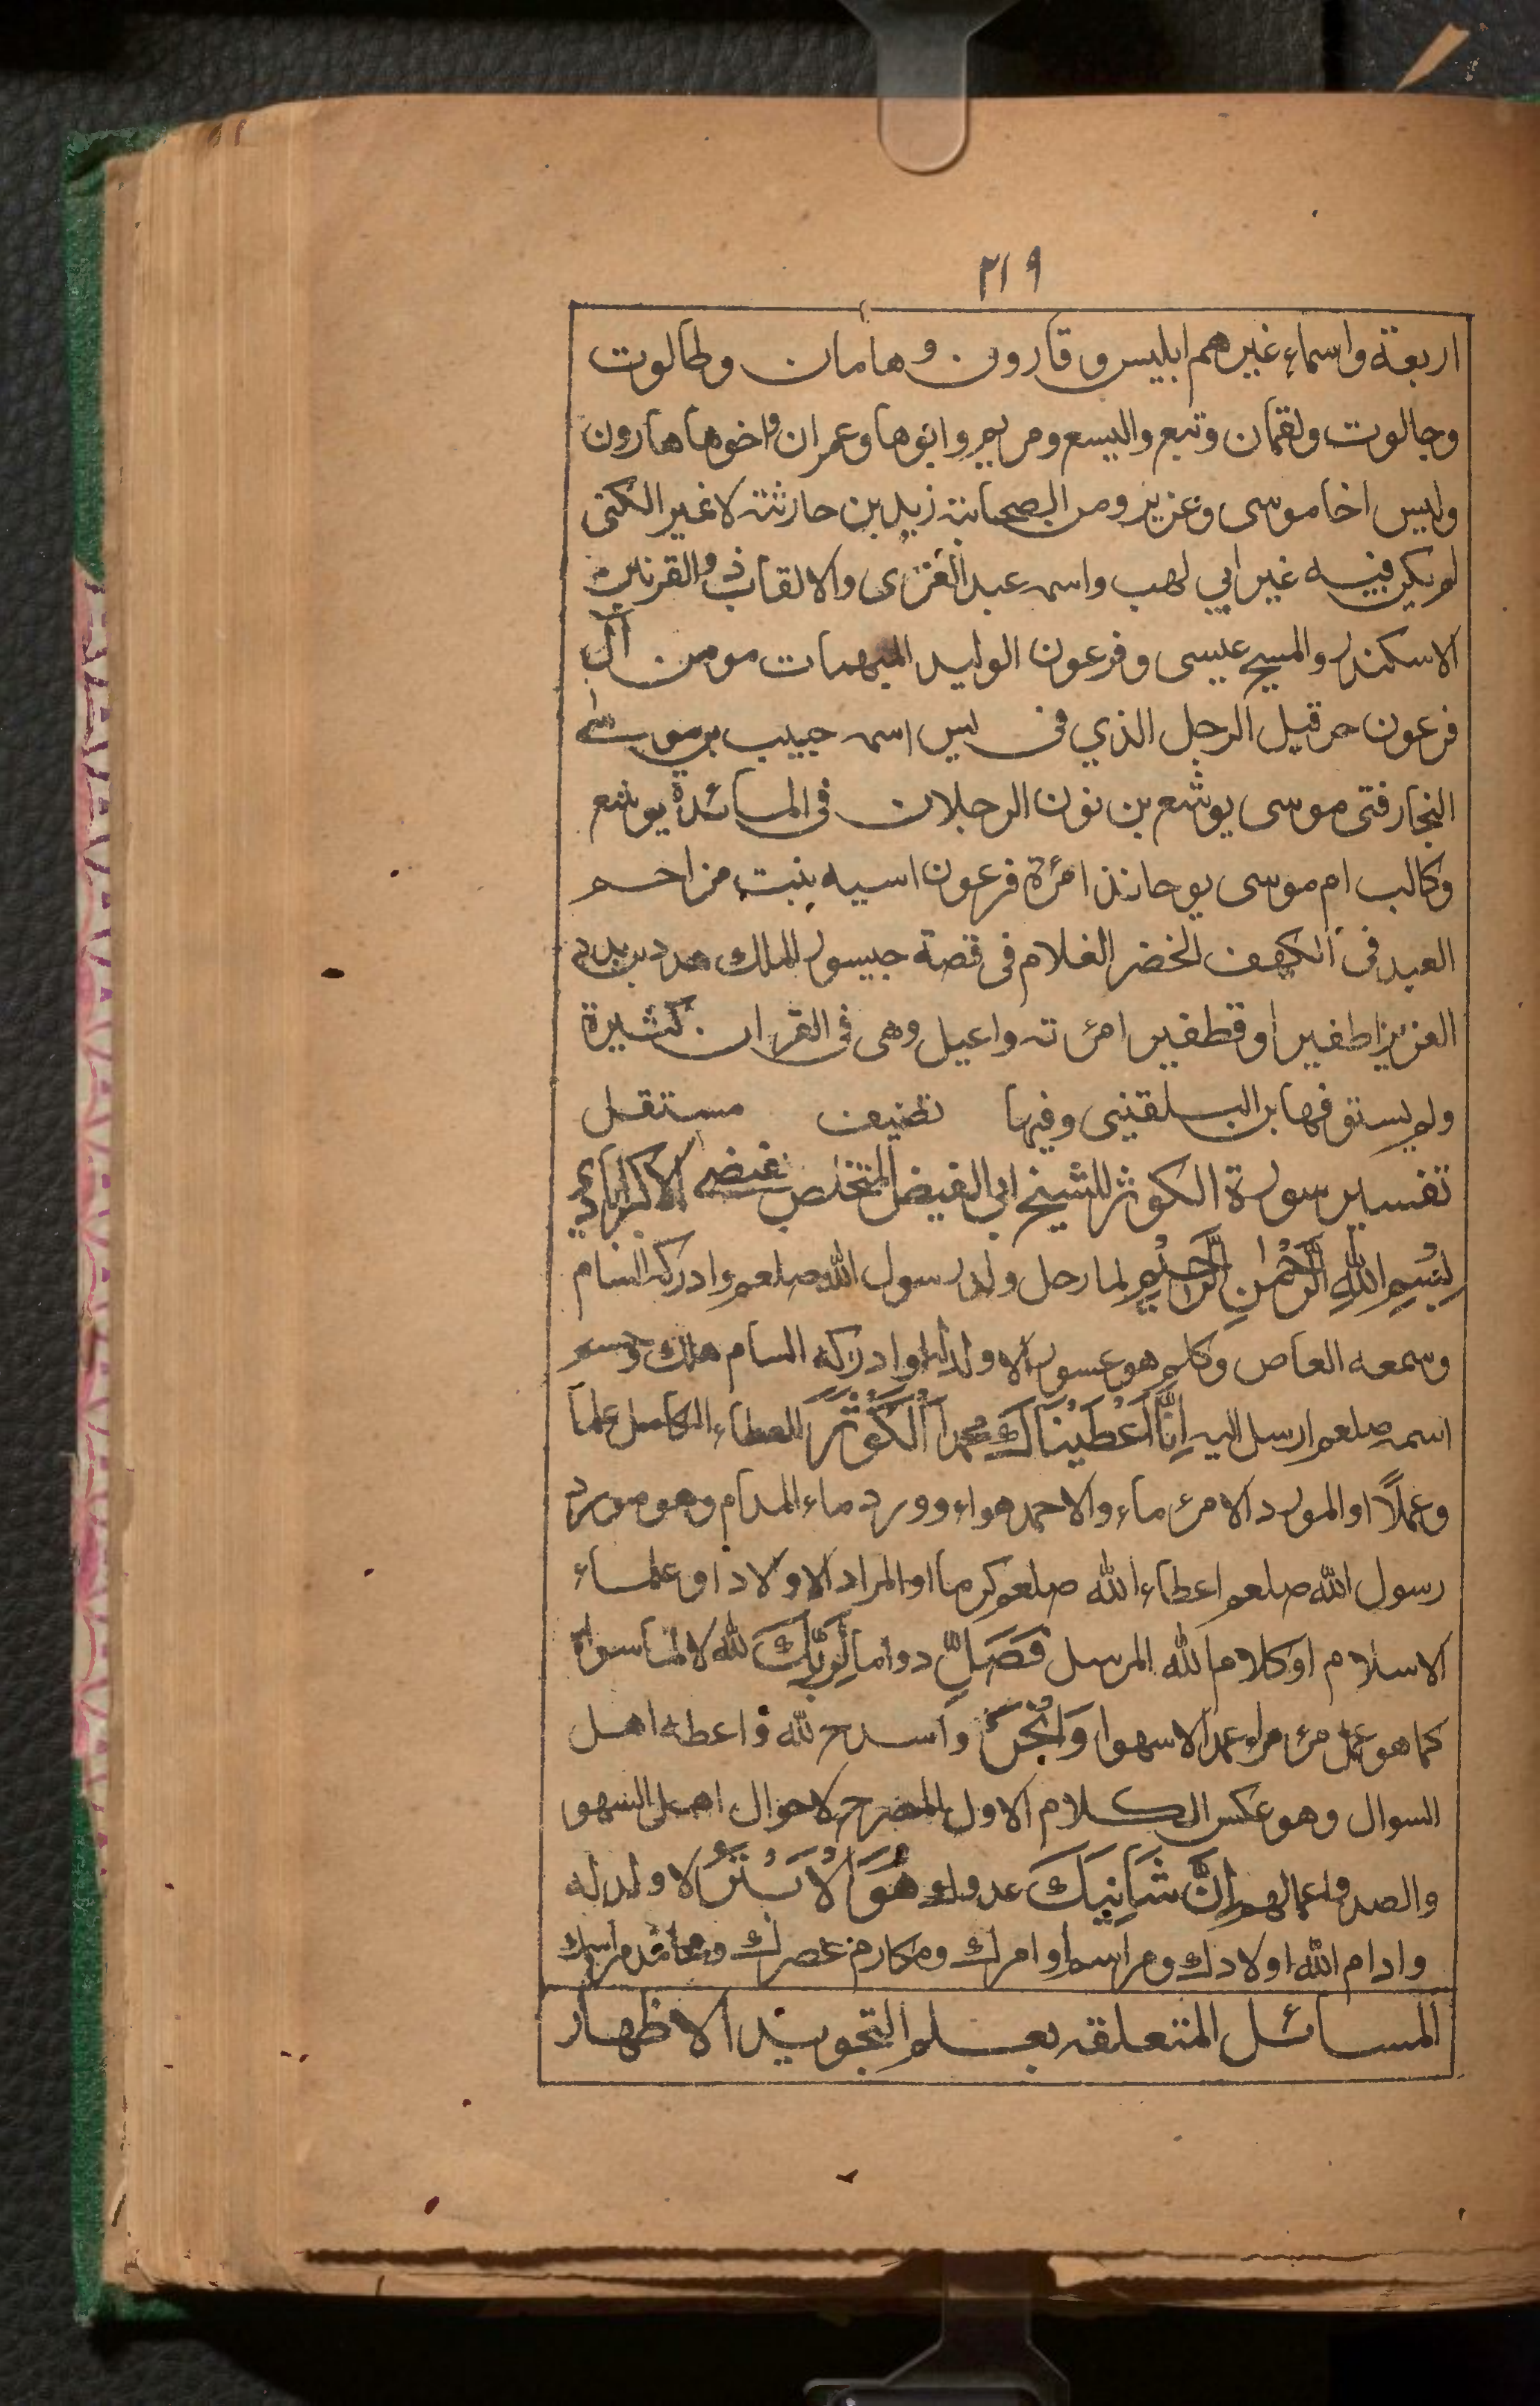 ٢١٩
اربعة واسماء غيرهم ابليس و قارون و هامان وطالوت
وجالوت ولقمان وتبع واليسع ومريم وابوها وعمران واخوها هارون
وليس اخا موسى وعزير ومن الصحابة زيد بن حارثة لا غير الكنى
لم يكن فيه غير ابي لهب واسمه عبد العزى والالقاب ذو القرنين
الاسكندر والمسيح عيسى وفرعون الوليد المبهمات مومن آل
فرعون حزقيل الرجل الذي في يس اسمه حبيب بن موسى
النجار فتى موسى يوشع بن نون الرجلان في المائدة يوشع
وكالب ام موسى يوحانذ امرٔة فرعون اسيه بنت مزاحم
العبد في الكهف الخضر الغلام في قصة جيسور الملك هدد بن بدد
العزيز اطفير او قطفير امرٔته واعيل وهى فى القران كثيرة
ولم يستوفها بن البلقينى وفيها تصنيف مستقل
تفسير سورة الكوثر للشيخ ابى الفيض المتخلص بفيضى الاكبرابادي
بِسْمِ اللهِ الرَّحْمٰنِ الرَّحِيْمِ لما رحل ولد رسول الله صلعم وادركه السام
وسمعه العاص وكلم هو عسور الا ولد له لوادركه السام هلك وحسم
اسمه صلعم ارسل اليه اِنَّا اَعْطَيْنَاكَ محمد الْكَوْثَرَ العطاء الكامل علما
وعملاً او المورد الامرٔ ماء والاحمد هواء وورد ماء المدام وهو مورد
رسول الله صلعم اعطاء الله صلعم كرما او المراد الاولاد او علماء
الاسلام او كلام الله المرسل فَصَلِّ دواما لِرَبِّكَ لله لا لما سواه
كما هو عمل مرٔ مراء عمدا لا سهوا وَانْحَرْ واسدح لله واعطه اهل
السوال وهو عكس الكلام الاول المصرح لاحوال اهل السهو
والصد واعمالهم اِنَّ شَانِئَكَ عدوك هُوَ الْاَبْتَرُ لا ولد له
وادام الله اولادك ومراسم اوامرك ومكارم عصرك ومحامد مراسمك
المسائل المتعلقه بعلم التجويد الاظهار